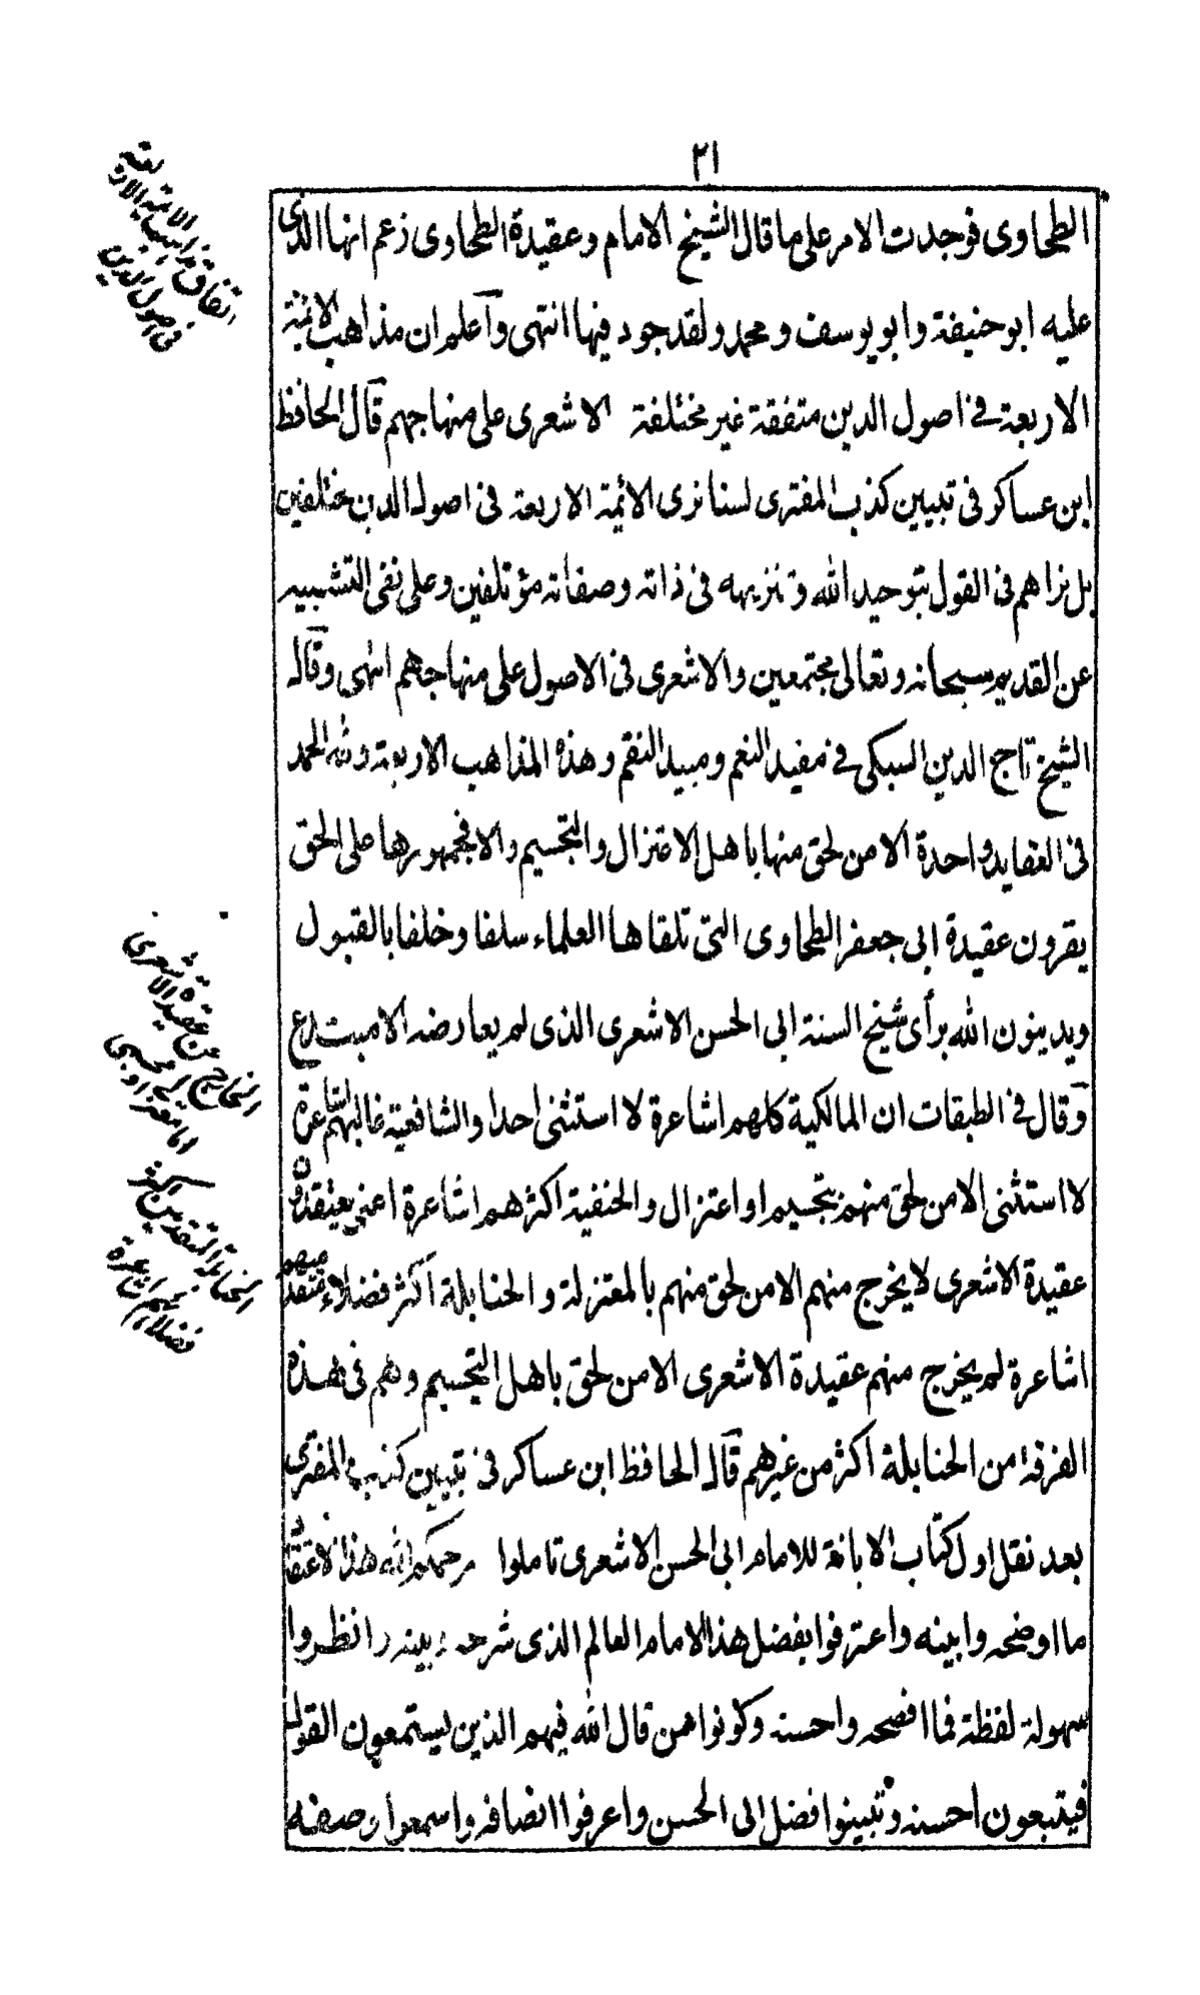 ٢١
الطحاوى فوجدت الامر على ما قال الشيخ الامام وعقيدة الطحاوى زعم انها الذى
عليه ابو حنيفة وابو يوسف ومحمد ولقد جود فيها انتهى وآعلم ان مذاهب الائمة
الاربعة فى اصول الدين متفقة غير مختلفة الاشعرى على منهاجهم قال الحافظ
ابن عساكر فى تبيين كذب المفترى لسنا نرى الائمة الاربعة فى اصول الدين مختلفين
بل نراهم فى القول بتوحيد الله وتنزيهه فى ذاته وصفاته مؤتلفين وعلى نفى التشبيه
عن القديم سبحانه وتعالى مجتمعين والاشعرى فى الاصول على منهاجهم انتهى وقال
الشيخ تاج الدين السبكى فى مفيد النعم ومبيد النقم وهذه المذاهب الاربعة ولله الحمد
فى العقايد واحدة الا من لحق منها باهل الاعتزال والتجسيم والا فجمهورها على الحق
يقرون عقيدة ابى جعفر الطحاوى التى تلقاها العلماء سلفا وخلفا بالقبول
ويدينون الله برأى شيخ السنة ابى الحسن الاشعرى الذى لم يعارضه الا مبتدع
وقال فى الطبقات ان المالكية كلهم اشاعرة لا استثنى احدا والشافعية غالبهم اشاعرة
لا استثنى الا من لحق منهم بتجسيم او اعتزال والحنفية اكثرهم اشاعرة اعنى يعتقدون
عقيدة الاشعرى لا يخرج منهم الا من لحق منهم بالمعتزلة والحنابلة اكثر فضلاء متقدميهم
اشاعرة لم يخرج منهم عقيدة الاشعرى الا من لحق باهل التجسيم وهم فى هذه
الفرقة من الحنابلة اكثر من غيرهم قال الحافظ ابن عساكر فى تبيين كذب المفترى
بعد نقل اول كتاب الابانة للامام ابى الحسن الاشعرى تاملوا رحمكم الله هذا الاعتقاد
ما اوضحه وابينه واعترفوا بفضل هذا الامام العالم الذى شرحه وبينه وانظروا
سهولة لفظة فما افصحه واحسنه وكونوا من قال الله فيهم الذين يستمعون القول
فيتبعون احسنه وتبينوا فضل ابى الحسن واعرفوا انصافه واسمعوا وصفه
اتفاق مذاهب الائمة الاربعة
فى اصول الدين
الخارج عن عقيدة الاشعرى
اما معتزلى او مجسمى
الحنابلة المتقدمين اكثر
فضلائهم اشاعرة